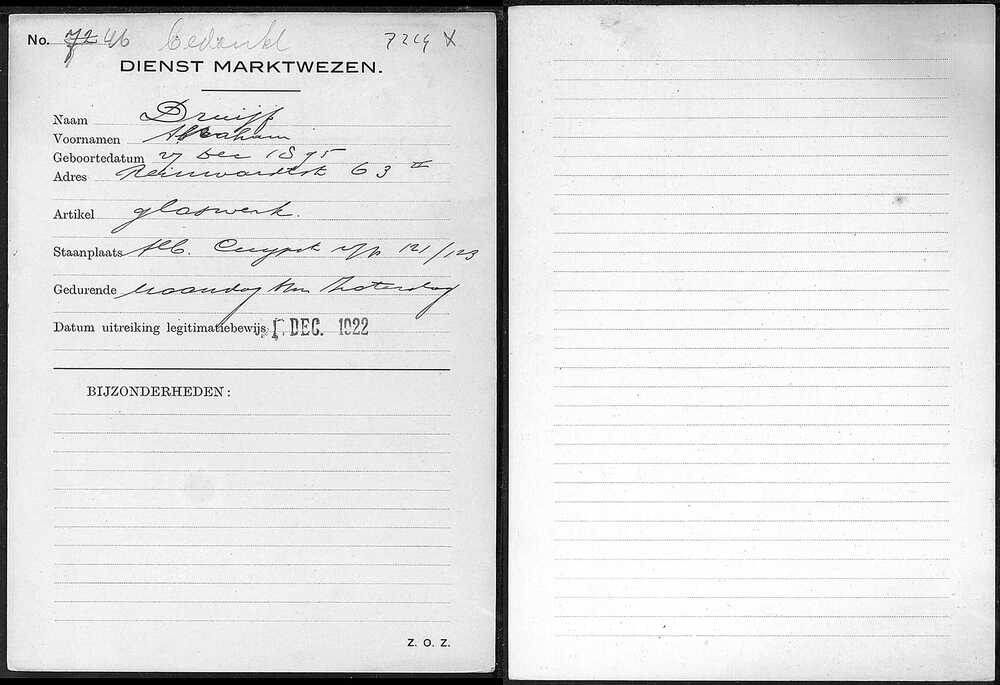 No. 72 46 bedankt 7219 X
DIENST MARKTWEZEN.
Naam Druijf
Voornamen Abraham
Geboortedatum 27 Dec 1895
Adres Reinwardtstr 63 II
Artikel glaswerk.
Staanplaats Alb. Cuypst v/p 121/123
Gedurende Maandag t/m Zaterdag
Datum uitreiking legitimatiebewijs 1. DEC. 1922
BIJZONDERHEDEN:
Z. O. Z.